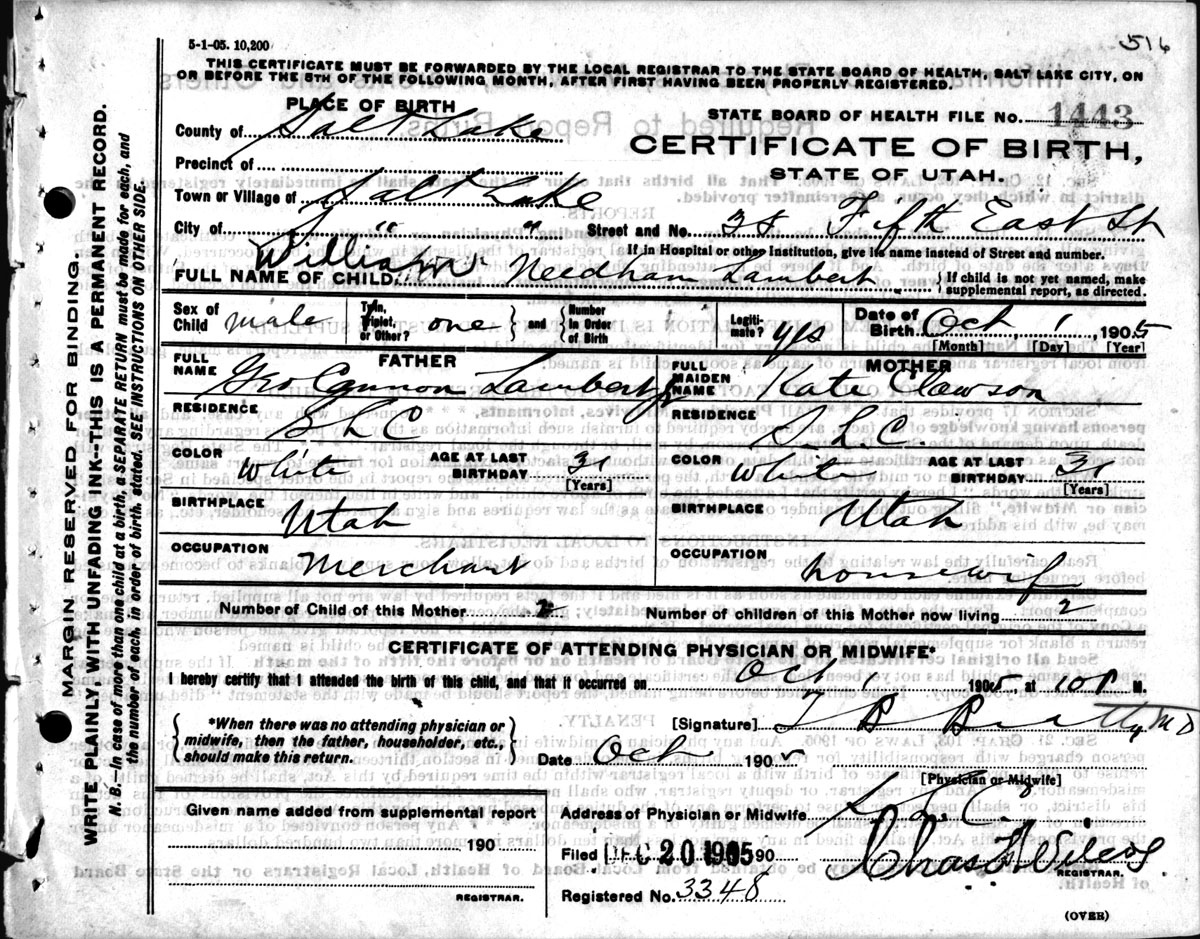 5-1-05. 10,200
516
THIS CERTIFICATE MUST BE FORWARDED BY THE LOCAL REGISTRAR TO THE STATE BOARD OF HEALTH, SALT LAKE CITY, ON
OR BEFORE THE 5TH OF THE FOLLOWING MONTH, AFTER FIRST HAVING BEEN PROPERLY REGISTERED.
PLACE OF BIRTH
STATE BOARD OF HEALTH FILE NO. 1443
County of Salt Lake
CERTIFICATE OF BIRTH,
Precinct of
STATE OF UTAH.
Town or Village of Salt Lake
City of " " Street and No. 38 Fifth East St
If in Hospital or other Institution, give its name instead of Street and number.
FULL NAME OF CHILD William Needham Lambert { If child is not yet named, make supplemental report, as directed.
Sex of Child male Twin, Triplet, or Other? one } and { Number In Order of Birth Legiti-mate? yes Date of Birth Oct 1 1905
[Month] [Day] [Year]
FATHER
FULL NAME Geo Cannon Lambert Jr
RESIDENCE S L C
COLOR White AGE AT LAST BIRTHDAY 31 [Years]
BIRTHPLACE Utah
OCCUPATION Merchant
MOTHER
FULL MAIDEN NAME Kate Clawson
RESIDENCE S L C.
COLOR White AGE AT LAST BIRTHDAY 31 [Years]
BIRTHPLACE Utah
OCCUPATION housewife
Number of Child of this Mother 2 Number of children of this Mother now living 2
CERTIFICATE OF ATTENDING PHYSICIAN OR MIDWIFE*
I hereby certify that I attended the birth of this child, and that it occurred on Oct 1 1905, at 10 P M.
{ *When there was no attending physician or
midwife, then the father, householder, etc.,
should make this return. }
[Signature] T B Beatty MD
Date Oct 190
[Physician or Midwife]
Given name added from supplemental report
190
REGISTRAR.
Address of Physician or Midwife S L C.
Filed DEC 20 1905 190
Chas F Wilcox
REGISTRAR.
Registered No. 3348
(OVER)
MARGIN RESERVED FOR BINDING.
WRITE PLAINLY WITH UNFADING INK--THIS IS A PERMANENT RECORD.
N. B.—In case of more than one child at a birth, a SEPARATE RETURN must be made for each, and
the number of each, in order of birth, stated. SEE INSTRUCTIONS ON OTHER SIDE.